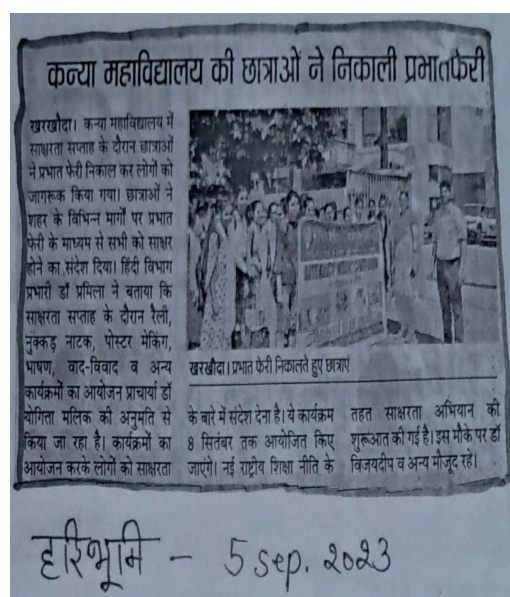 कन्या महाविद्यालय की छात्राओं ने निकाली प्रभातफेरी
खरखौदा। कन्या महाविद्यालय में
साक्षरता सप्ताह के दौरान छात्राओं
ने प्रभात फेरी निकाल कर लोगों को
जागरूक किया गया। छात्राओं ने
शहर के विभिन्न मार्गों पर प्रभात
फेरी के माध्यम से सभी को साक्षर
होने का संदेश दिया। हिंदी विभाग
प्रभारी डॉ प्रमिला ने बताया कि
साक्षरता सप्ताह के दौरान रैली,
नुक्कड़ नाटक, पोस्टर मेकिंग,
भाषण, वाद-विवाद व अन्य
कार्यक्रमों का आयोजन प्राचार्या डॉ
योगिता मलिक की अनुमति से
किया जा रहा है। कार्यक्रमों का
आयोजन करके लोगों को साक्षरता
खरखौदा। प्रभात फेरी निकालते हुए छात्राएं
के बारे में संदेश देना है। ये कार्यक्रम
8 सितंबर तक आयोजित किए
जाएंगे। नई राष्ट्रीय शिक्षा नीति के
तहत साक्षरता अभियान की
शुरूआत की गई है। इस मौके पर डॉ
विजयदीप व अन्य मौजूद रहे।
हरिभूमि - 5 sep. 2023